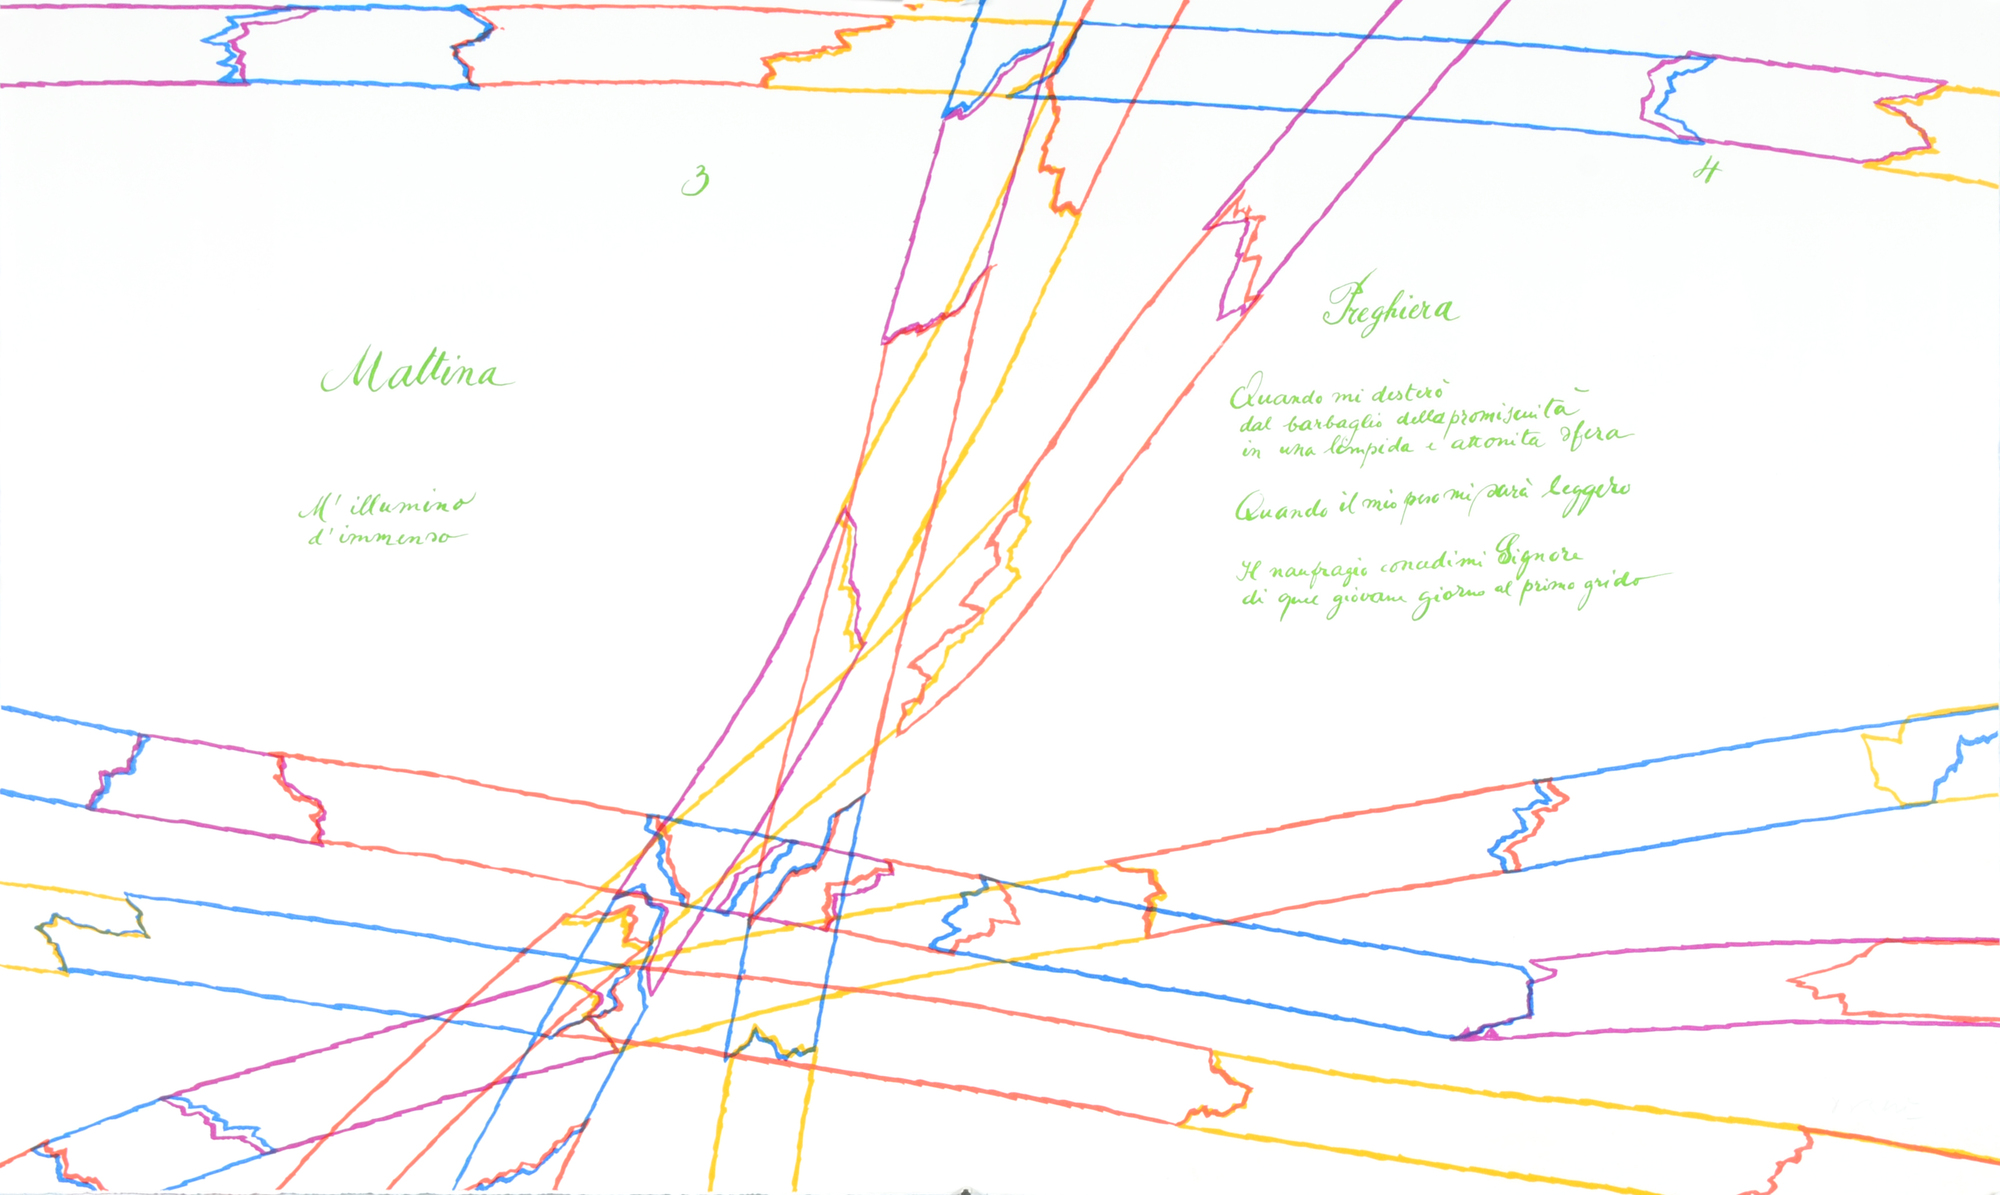 3
Mattina
M' illumino
d' immenso
4
Preghiera
Quando mi desterò
dal barbaglio della promiscuità
in una limpida e attonita sfera
Quando il mio peso mi sarà leggero
Il naufragio concedimi Signore
di quel giovane giorno al primo grido